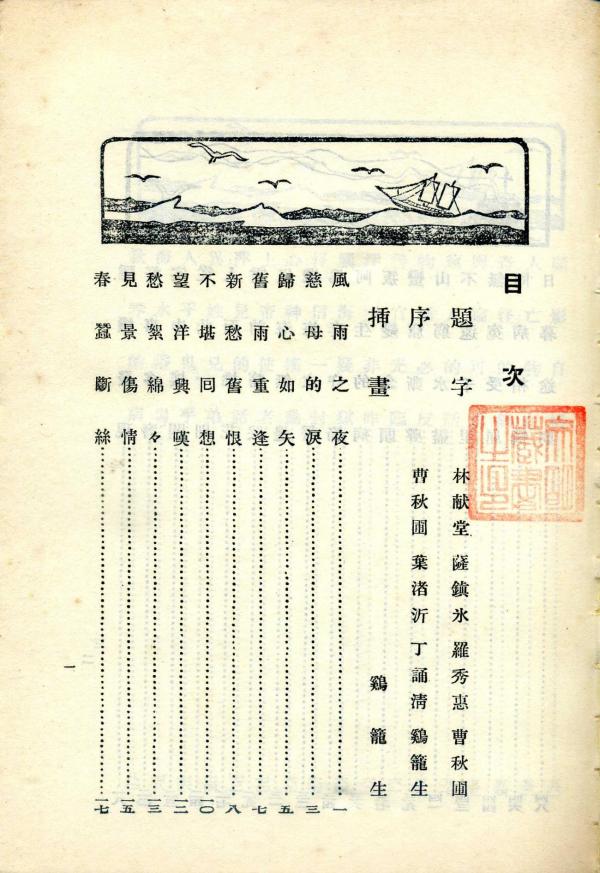 目次
題字 林献堂 薩鎮氷 羅秀惠 曹秋圃
序 曹秋圃 葉渚沂 丁誦清 鷄籠生
揷畫 鷄籠生
風雨之夜……一
慈母的淚……三
歸心如矢……五
舊雨重逢……七
新愁舊恨……八
不堪囘想……一〇
望洋興嘆……一二
愁絮綿々……一三
見景傷情……一五
春蠶斷絲……一七
一